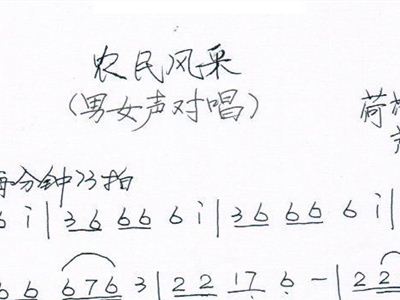 农民风采
（男女声对唱）
荷
每分钟73拍
6 i | 3 6 6 6 6 i | 3 6 6 6 6 i |
6 6 6 7 6 3 | 2 2 1 7 6 - | 2 2